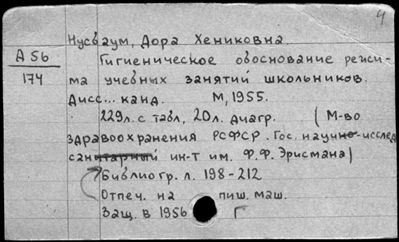 4
Нусваум, Дора Хениковна.
А 56
174
Гигиеническое обоснование режи-
ма учебных занятий школьников.
Дисс... канд. М, 1955.
229л. с табл, 20л. диагр. (М-во
здравоохранения РСФСР. Гос. научно-исслед
санитарный ин-т им. Ф.Ф. Эрисмана)
Библиогр. л. 198-212
Отпеч. на пиш. маш.
Защ. в 1956 Г